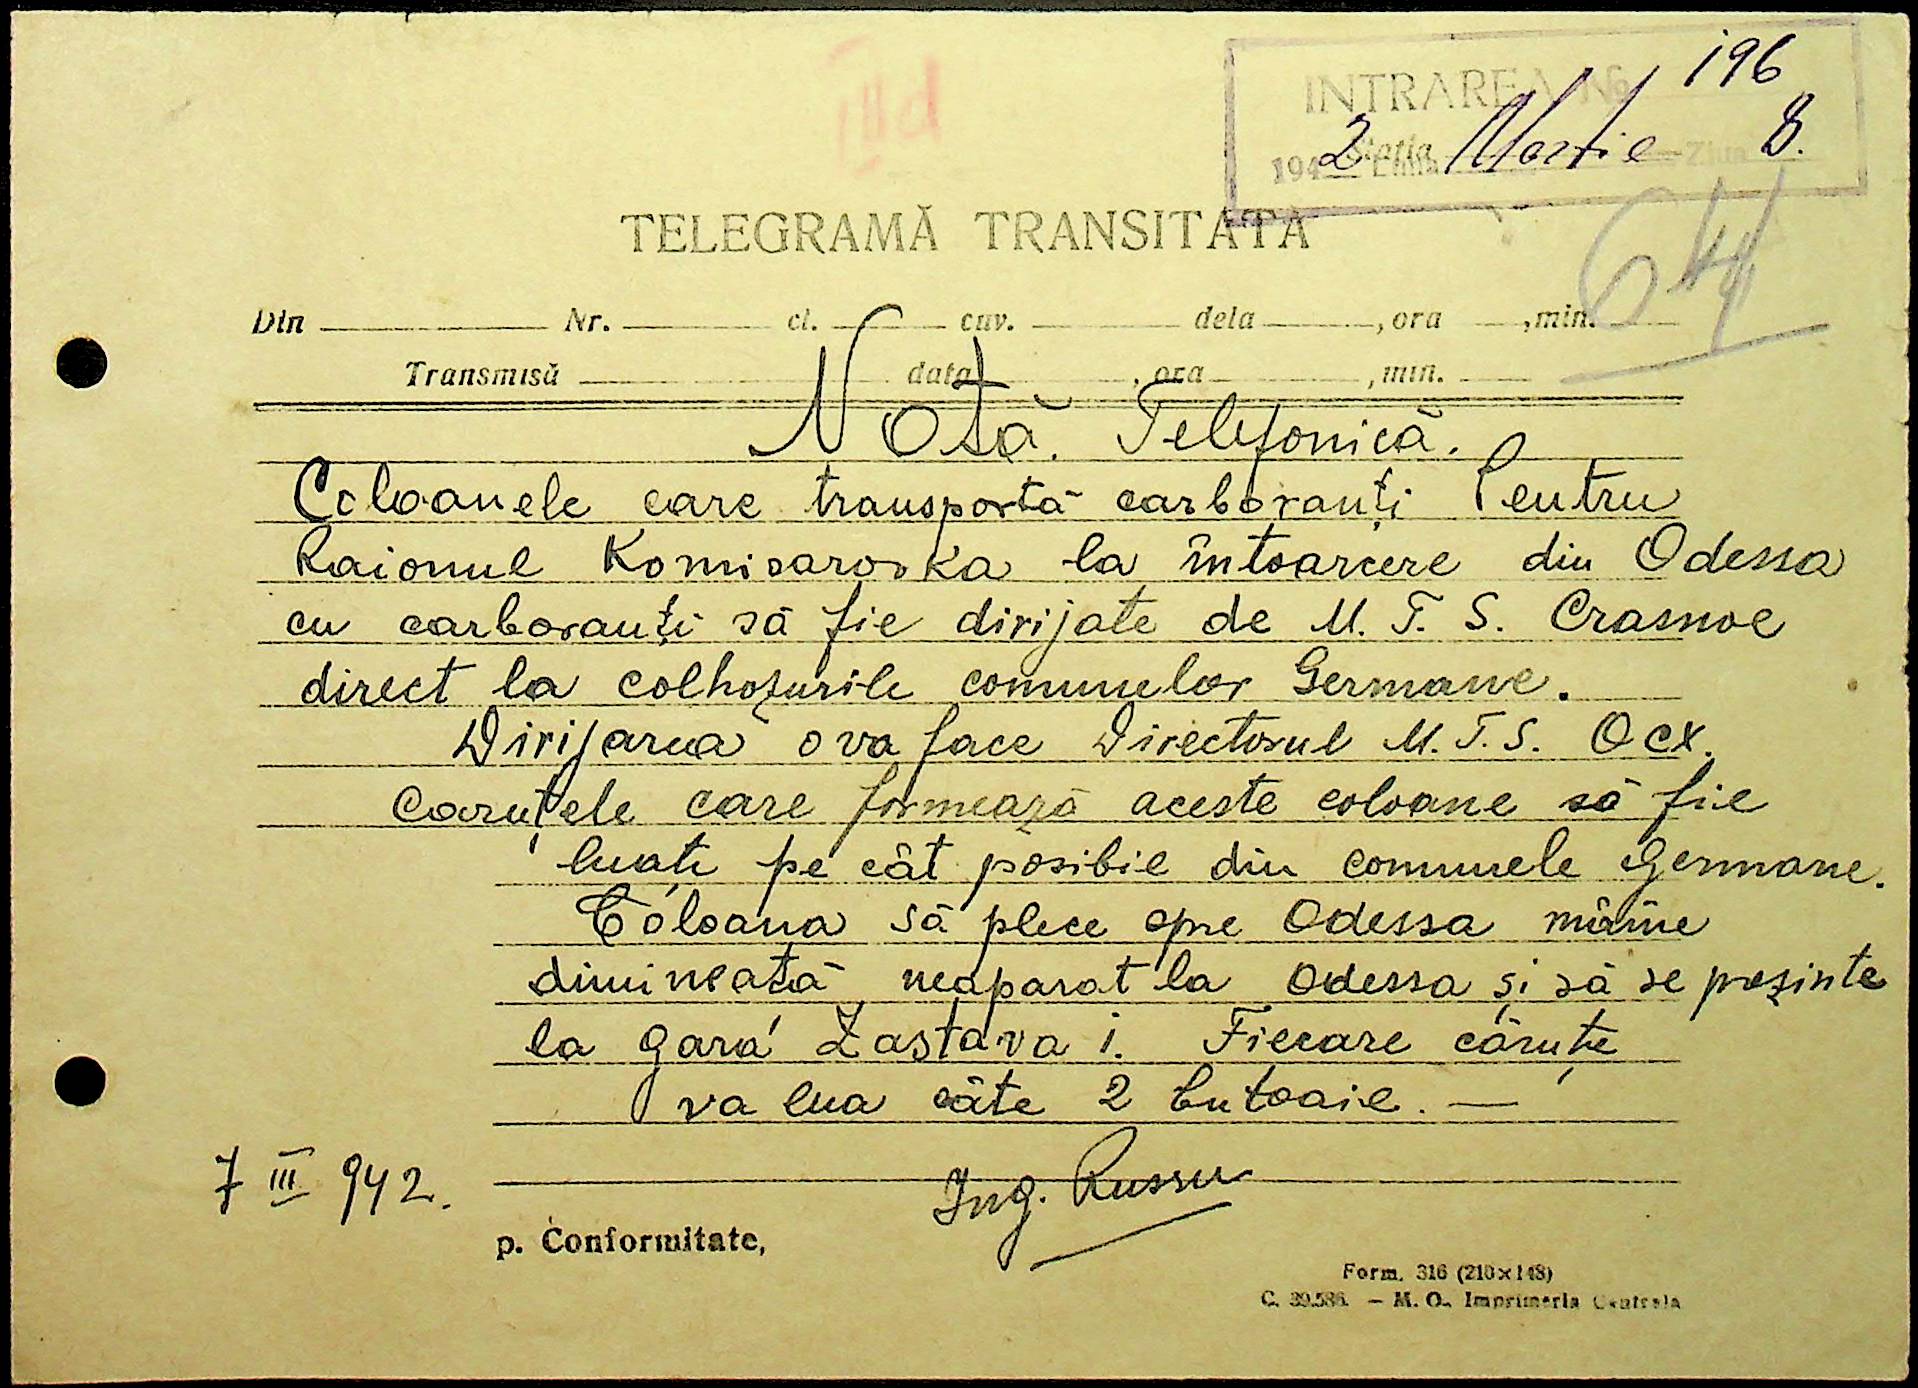 INTRAREA No 196
1942 Luna Martie Ziua 8.
TELEGRAMĂ TRANSITATĂ
Din Nr. cl. cuv. dela , ora , min.
Transmisă data , ora , min.
Notă. Telefonică.
Coloanele care transportă carboranți Pentru
Raionul Komisarovka la întoarcere din Odessa
cu carboranți să fie dirijate de M. T. S. Crasnoe
direct la colhozurile comunelor Germane.
Dirijarea o va face Directorul M.T.S. Ocx.
Caruțele care formează aceste coloane să fie
luate pe cât posibil din comunele Germane.
Coloana să plece spre Odessa mâine
dimineață neaparat la Odessa și să se prezinte
la gara Zastava i. Fiecare căruțe
va lua câte 2 butoaie. —
7 III 942.
Ing. Russu
p. Conformitate,
Form. 316 (210×148)
C. 39.586. – M. O., Imprimeria Centrala